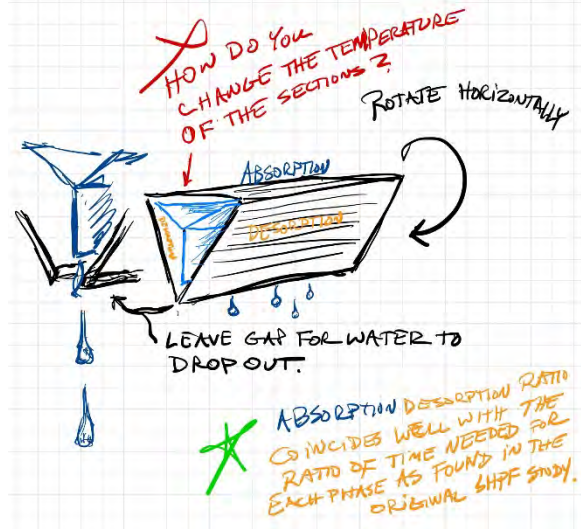 HOW DO YOU
CHANGE THE TEMPERATURE
OF THE SECTIONS?
ROTATE HORIZONTALLY
ABSORPTION
DESORPTION
DESORPTION
LEAVE GAP FOR WATER TO
DROP OUT.
ABSORPTION DESORPTION RATIO
COINCIDES WELL WITH THE
RATIO OF TIME NEEDED FOR
EACH PHASE AS FOUND IN THE
ORIGINAL SHPF STUDY.